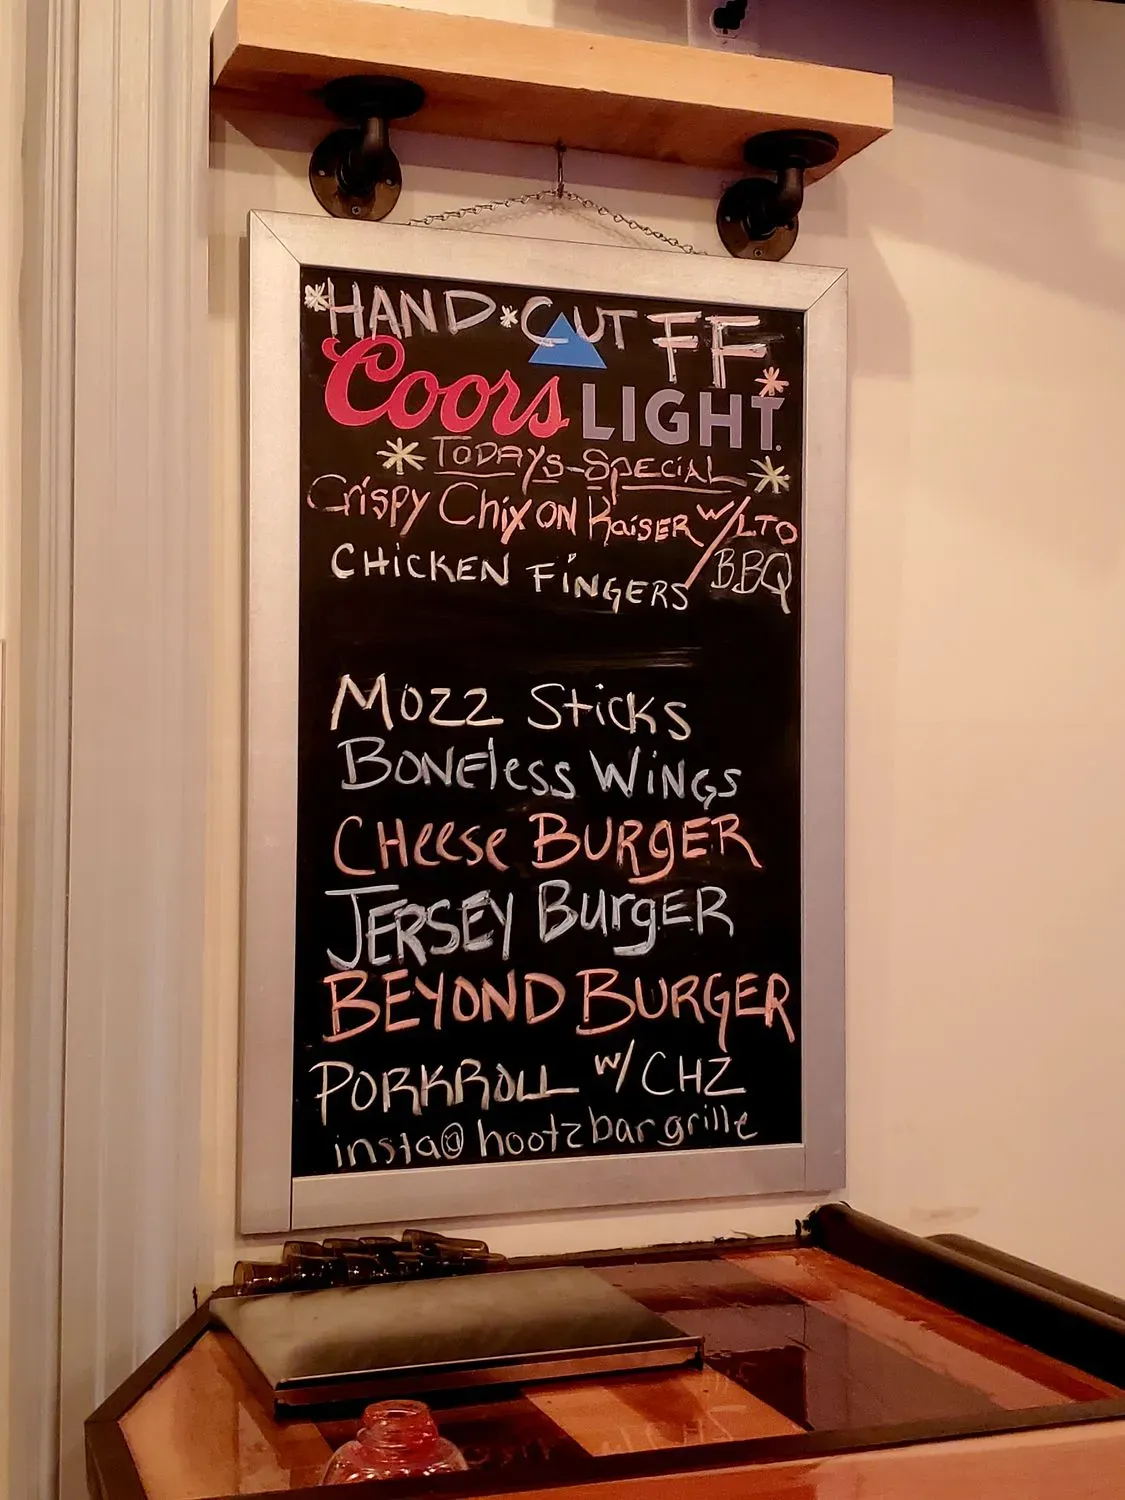 *HAND*CUT FF*
Coors LIGHT
*TODAYS-SPECIAL*
Crispy Chix ON KaiSER w/LTO
CHiCKEN FiNGERS BBQ
MOZZ SticKS
BONEless WiNGS
CHeese BURGER
JERSEY BurgER
BEYOND BURGER
PORKROLL w/CHZ
insta@hootzbargrille